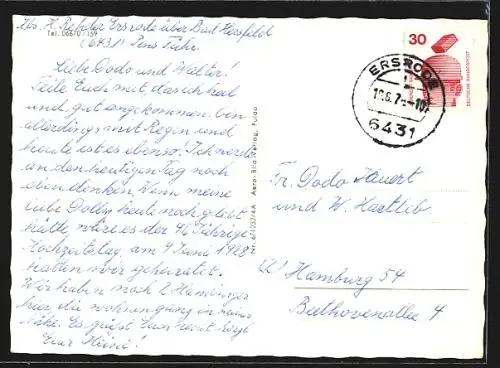 Abs. H. Rehder Ersrode über Bad Hersfeld
Tel. 06670/159
(6431) Pens. Führ.
Liebe Dodo und Walter!
Teile Euch mit das ich heil
und gut angekommen bin
allerdings mit Regen und
heute ist es ebenso. Ich werde
an den heutigen Tag noch
eben denken. Wenn meine
liebe Dolly heute noch gelebt
hätte wäre es der 46 Jährige
Hochzeitstag, am 9 Juni 1928
hatten wir geheiratet.
Wir haben noch 2 Hamburger
hier, die wohnen in
Nähe. Es grüßt Euch recht herzl.
Euer Heini!
Aero-Bild-Verlag, Fulda
30
DEUTSCHE BUNDESPOST
ERSRODE
10.6.7
6431
Fr. Dodo
und W. Hartleib
Hamburg 54
Beethovenallee 4